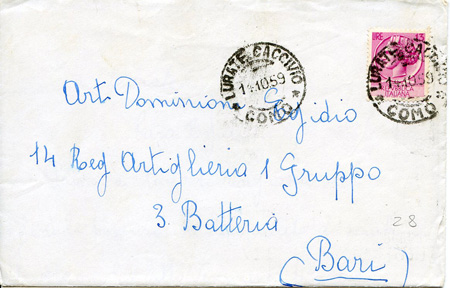 LURATE CACCIVIO
10.59
* COMO *
LIRE
LURATE CACCIVIO
10.59
* COMO *
Art. Dominioni Egidio
14 Reg Artiglieria 1 Gruppo
3. Batteria
28
(Bari)